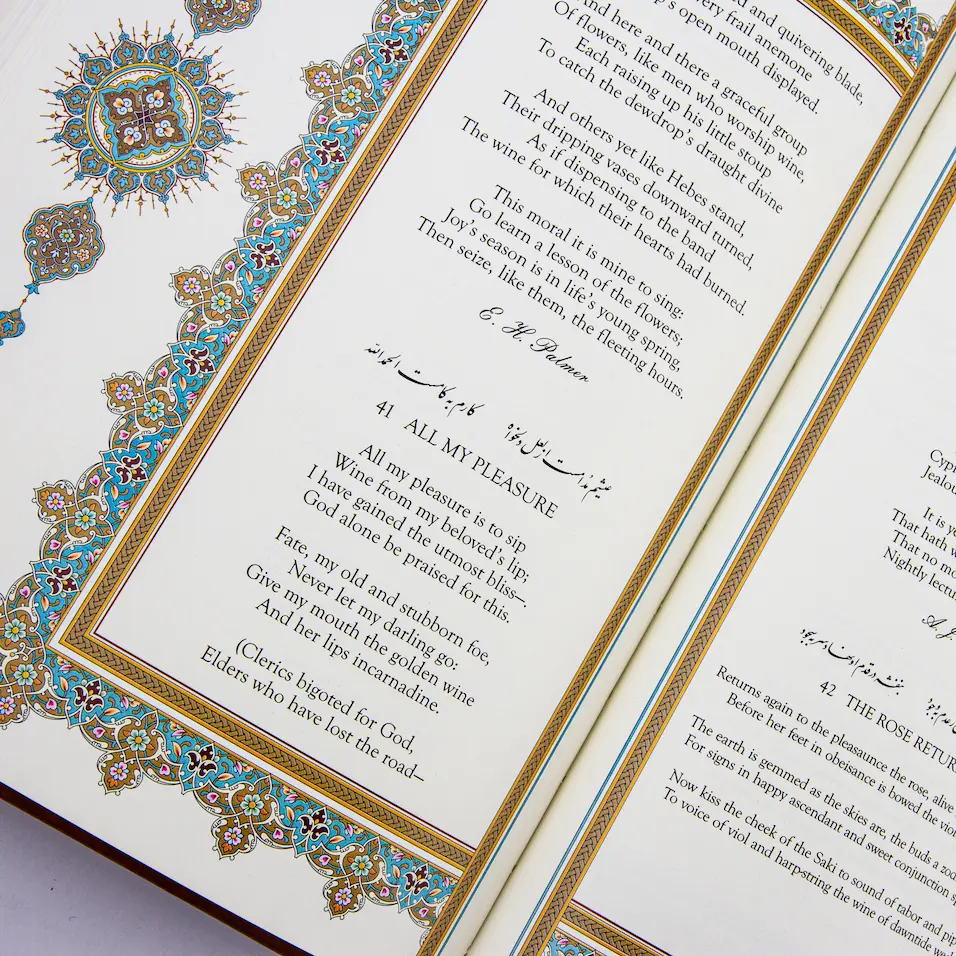 and quivering blade,
frail anemone
open mouth displayed.
And here and there a graceful group
Of flowers, like men who worship wine,
Each raising up his little stoup
To catch the dewdrop's draught divine
And others yet like Hebes stand,
Their dripping vases downward turned,
As if dispensing to the band
The wine for which their hearts had burned.
This moral it is mine to sing:
Go learn a lesson of the flowers;
Joy's season is in life's young spring,
Then seize, like them, the fleeting hours.
E. H. Palmer
عیشم مدام است از لعل دلخواه کارم به کام است الحمدلله
41 ALL MY PLEASURE
All my pleasure is to sip
Wine from my beloved's lip;
I have gained the utmost bliss–.
God alone be praised for this.
Fate, my old and stubborn foe,
Never let my darling go:
Give my mouth the golden wine
And her lips incarnadine.
(Clerics bigoted for God,
Elders who have lost the road–
It is
That hath
That no
Nightly
A. J
بنفشه در قدم او نهاد سر بسجود
42 THE ROSE
Returns again to the pleasaunce the rose, alive
Before her feet in obeisance is bowed the
The earth is gemmed as the skies are, the buds a
For signs in happy ascendant and sweet conjunction
Now kiss the cheek of the Saki to sound of tabor and
To voice of viol and harp-string the wine of dawntide